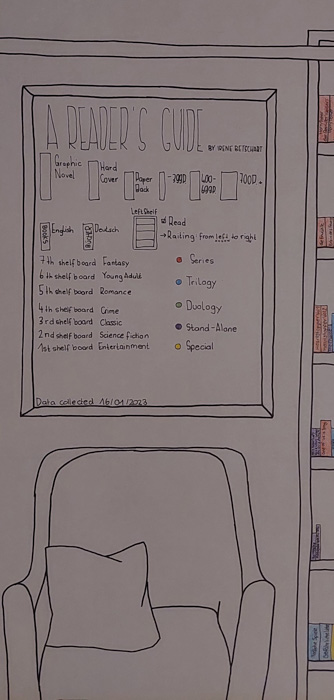 A READER'S GUIDE BY IRENE BETSCHART
Graphic Novel
Hard Cover
Paper Back
-399p
400-699p
700p+
BOOKS English
BÜCHER Deutsch
Left Shelf
Read
→ Raiting: from left to right
7th shelf board Fantasy
6th shelf board Young Adult
5th shelf board Romance
4th shelf board Crime
3rd shelf board Classic
2nd shelf board Science fiction
1st shelf board Entertainment
Series
Trilogy
Duology
Stand-Alone
Special
Data collected 16/01/2023